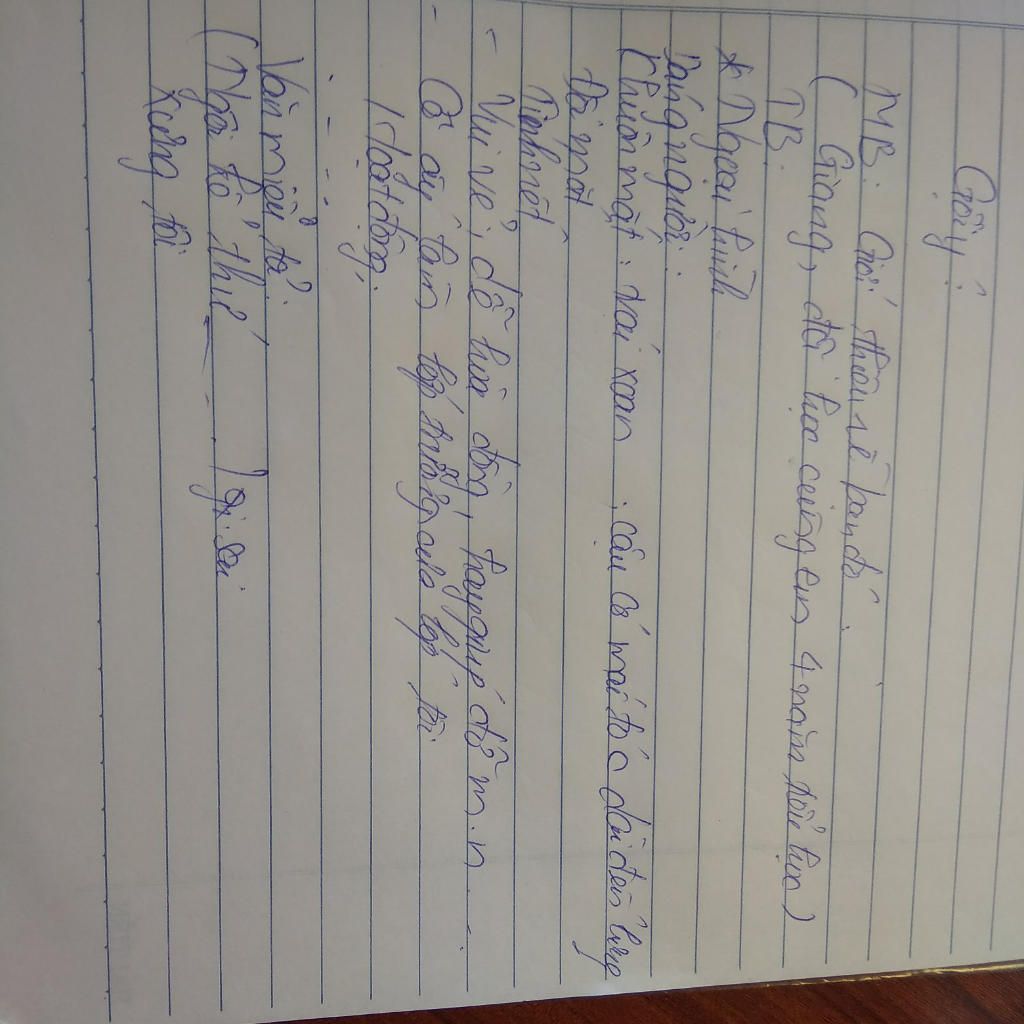 Gợi ý:
MB: Giới thiệu về bạn đó.
( Giang, đã học cùng em 4 năm tiểu học)
TB.
* Ngoại hình
Dáng người:
Khuôn mặt: trái xoan, cậu có mái tóc dài đến lưng
Đôi mắt
Tính nết
- Vui vẻ, dễ hòa đồng, hay giúp đỡ m.n ...
- Cô ấy làm lớp trưởng của lớp tôi.
Hoạt động,
. - - -
Văn miêu tả:
(Ngôi kể thứ - - - ) ngôi.
Xưng tôi